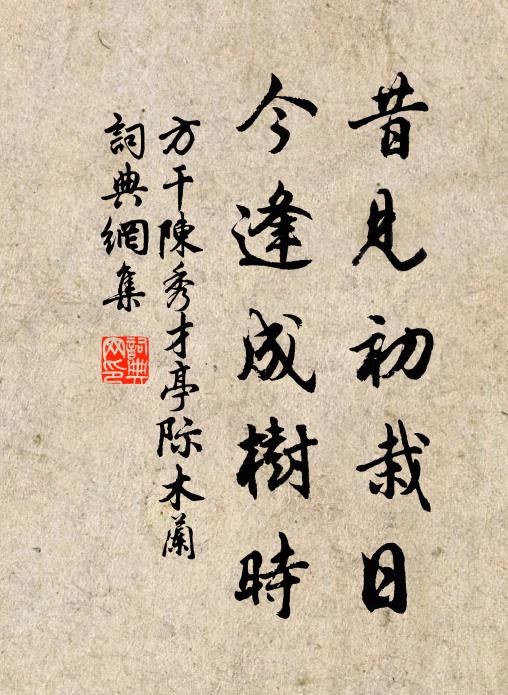 昔見初栽日
今逢成樹時
方干陳秀才亭际木蘭
詞典網集
詞典网印